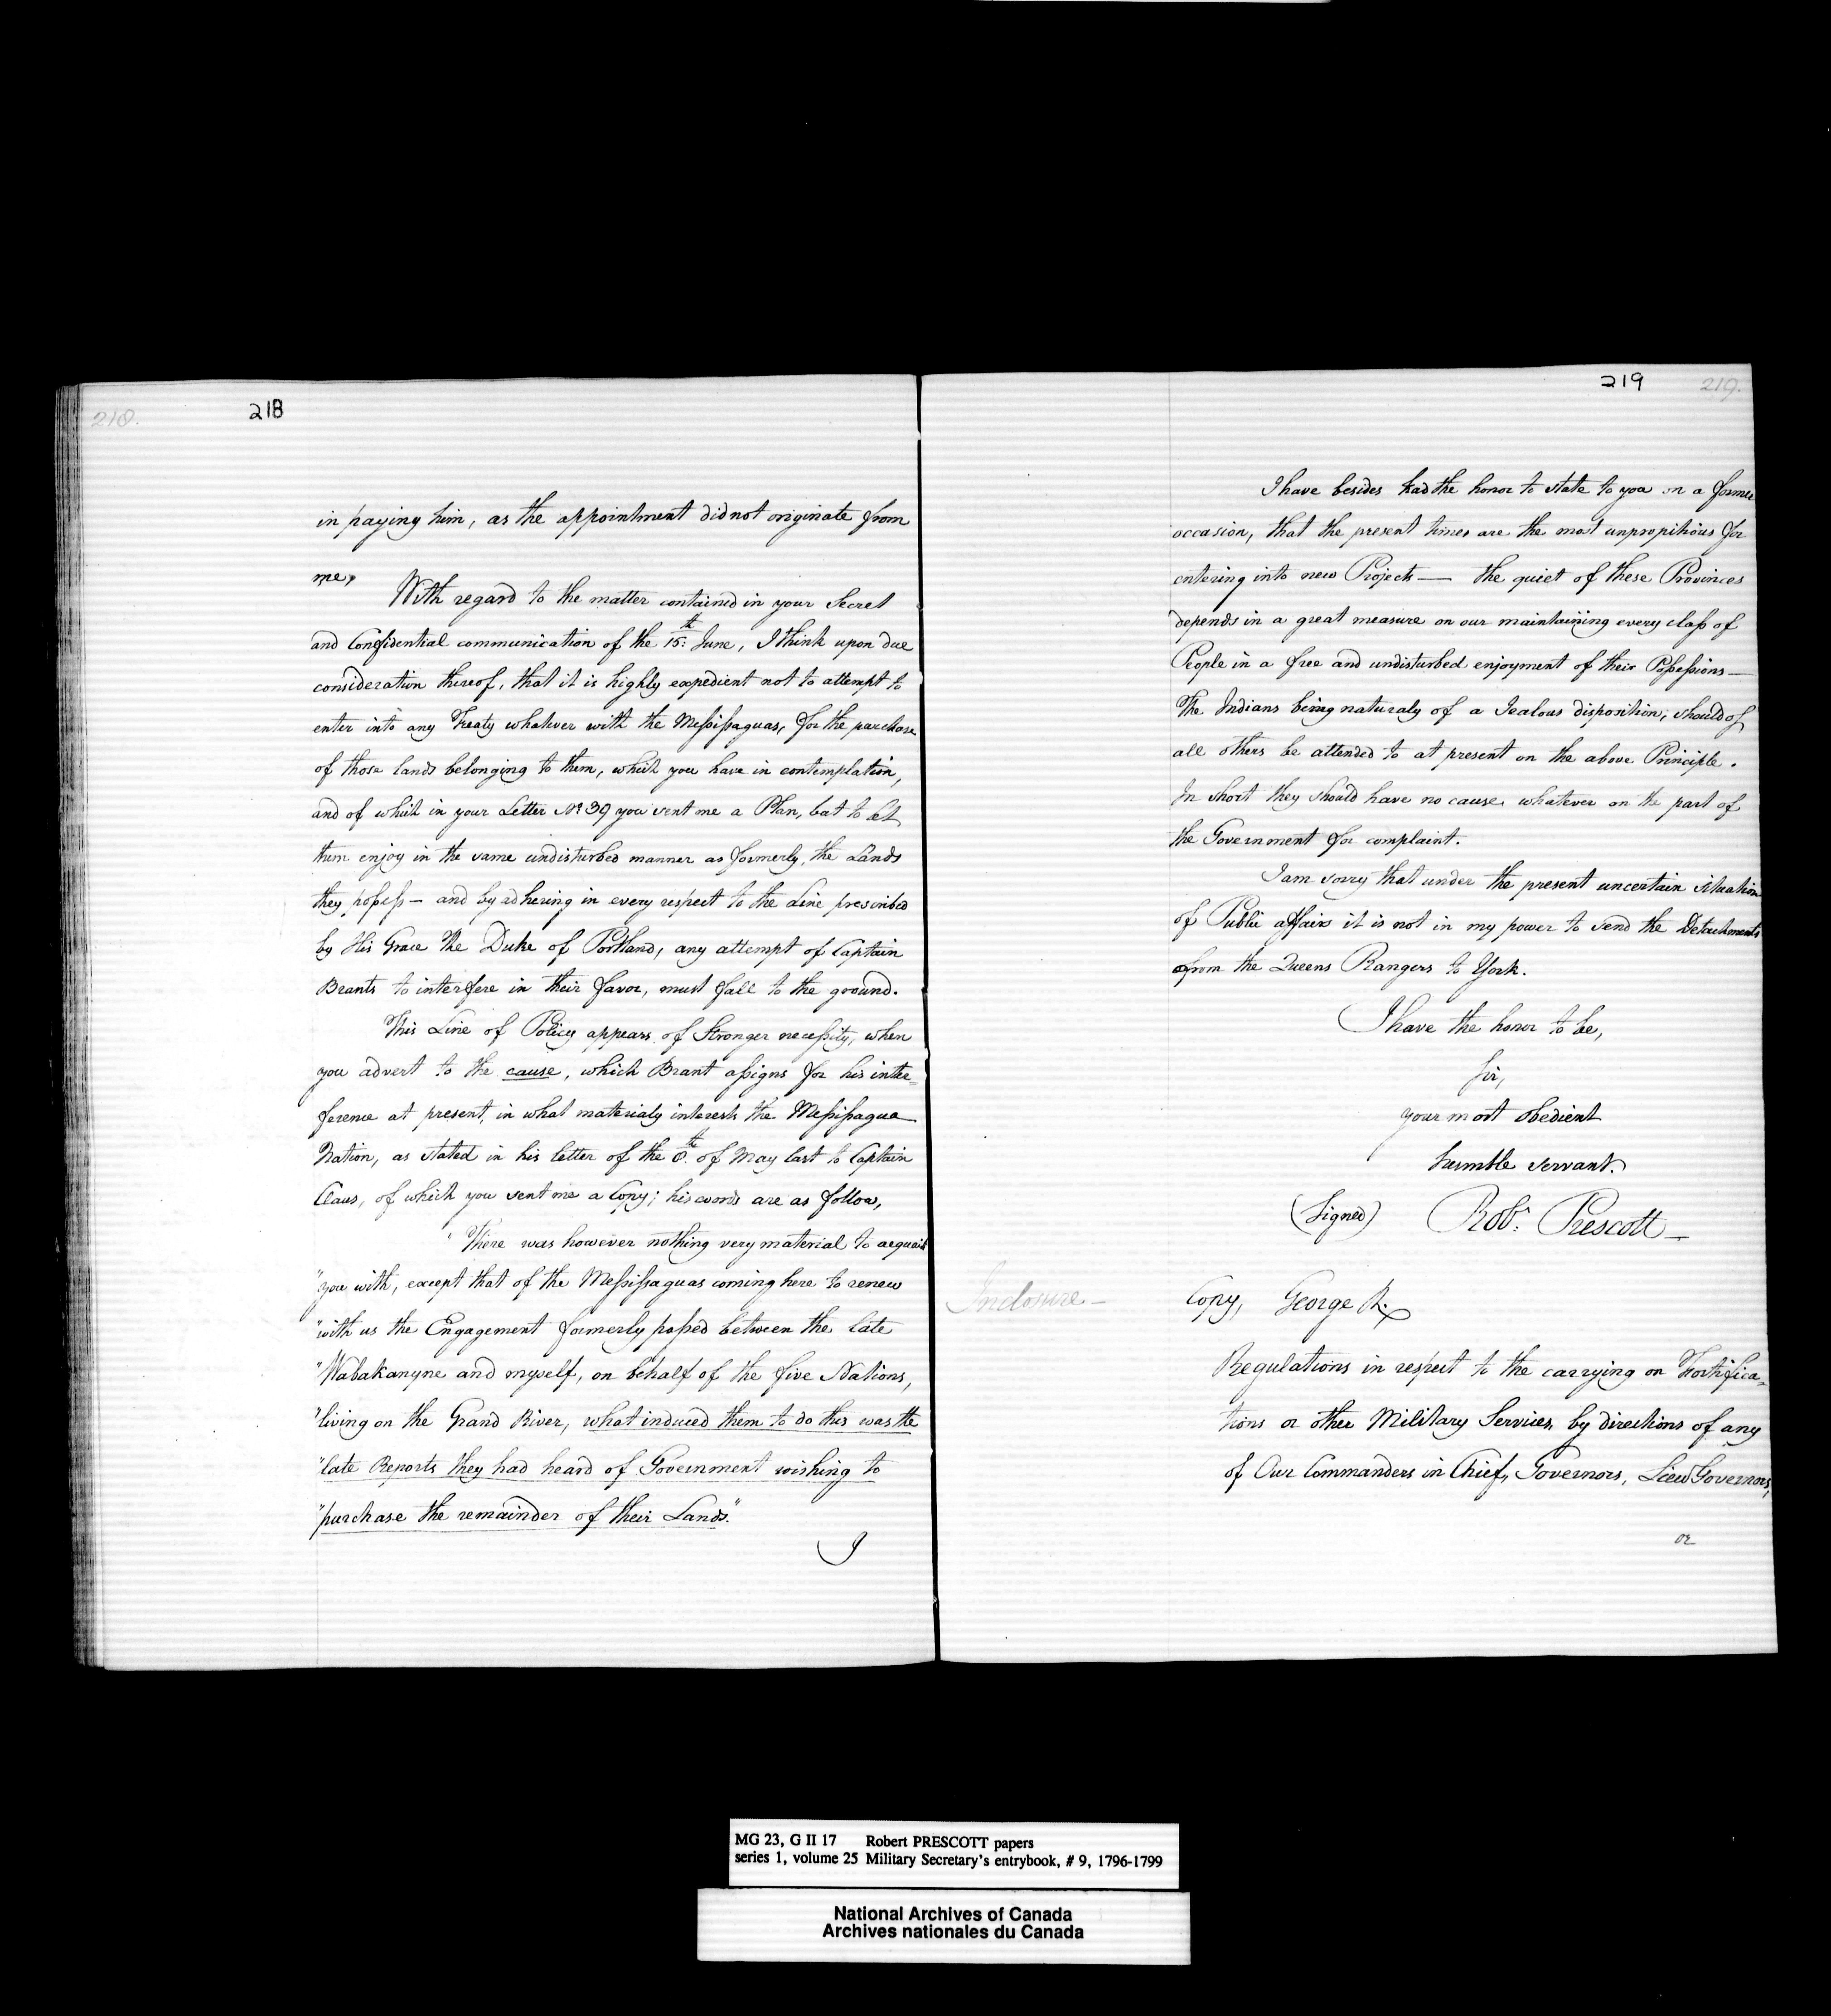 218.
218
in paying him, as the appointment did not originate from
me,
With regard to the matter contained in your Secret
and Confidential communication of the 15th: June, I think upon due
consideration thereof, that it is highly expedient not to attempt to
enter into any Treaty whatever with the Messissaguas, for the purchase
of those lands belonging to them, which you have in contemplation,
and of which in your Letter No 39 you sent me a Plan, but to let
them enjoy in the same undisturbed manner as formerly, the Lands
they possess — and by adhering in every respect to the Line prescribed
by His Grace The Duke of Portland, any attempt of Captain
Brants to interfere in their favor, must fall to the ground.
This Line of Policy appears of Stronger necessity, when
you advert to the cause, which Brant assigns for his inter=
ference at present, in what materialy interests the Messissagua
Nation, as stated in his letter of the 8th. of May last to Captain
Claus, of which you sent me a Copy; his words are as follow,
"There was however nothing very material to acquaint
"you with, except that of the Messissaguas coming here to renew
"with us the Engagement formerly passed between the late
"Wabakanyne and myself, on behalf of the five Nations,
"living on the Grand River, what induced them to do this was the
"late Reports they had heard of Government wishing to
"purchase the remainder of their Lands."
I
219
219.
I have besides had the honor to state to you on a former
occasion, that the present times are the most unpropitious for
entering into new Projects — the quiet of these Provinces
depends in a great measure on our maintaining every class of
People in a free and undisturbed enjoyment of their Possessions —
The Indians being naturaly of a Jealous disposition, should of
all others be attended to at present on the above Principle.
In short they should have no cause whatever on the part of
the Government for complaint.
I am sorry that under the present uncertain situation
of Public affairs it is not in my power to send the Detachments
from the Queens Rangers to York.
I have the honor to be,
Sir,
your most obedient
humble servant.
(Signed) Robt. Prescott —
Inclosure —
Copy, George R.
Regulations in respect to the carrying on Fortifica=
tions or other Military Services, by directions of any
of Our Commanders in Chief, Governors, Lieut Governors,
or
MG 23, G II 17 Robert PRESCOTT papers
series 1, volume 25 Military Secretary's entrybook, # 9, 1796-1799
National Archives of Canada
Archives nationales du Canada